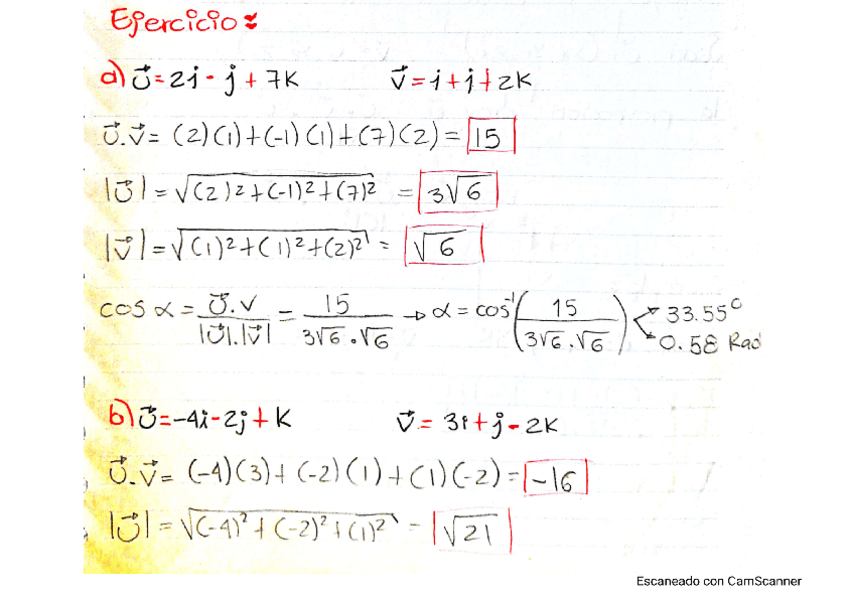 Ejercicio:
a) U⃗=2i-j+7K V⃗=i+j+2K
U⃗.V⃗= (2)(1)+(-1)(1)+(7)(2)= 15
|U⃗|=√(2)²+(-1)²+(7)² = 3√6
|V⃗|=√(1)²+(1)²+(2)² = √6
cos α = U⃗.V/|U⃗|.|V⃗| = 15/3√6.√6 → α = cos⁻¹(15/3√6.√6) 33.55° 0.58 Rad
b) U⃗=-4i-2j+K V⃗= 3i+j-2K
U⃗.V⃗= (-4)(3)+(-2)(1)+(1)(-2)= -16
|U⃗|=√(-4)²+(-2)²+(1)² = √21
Escaneado con CamScanner